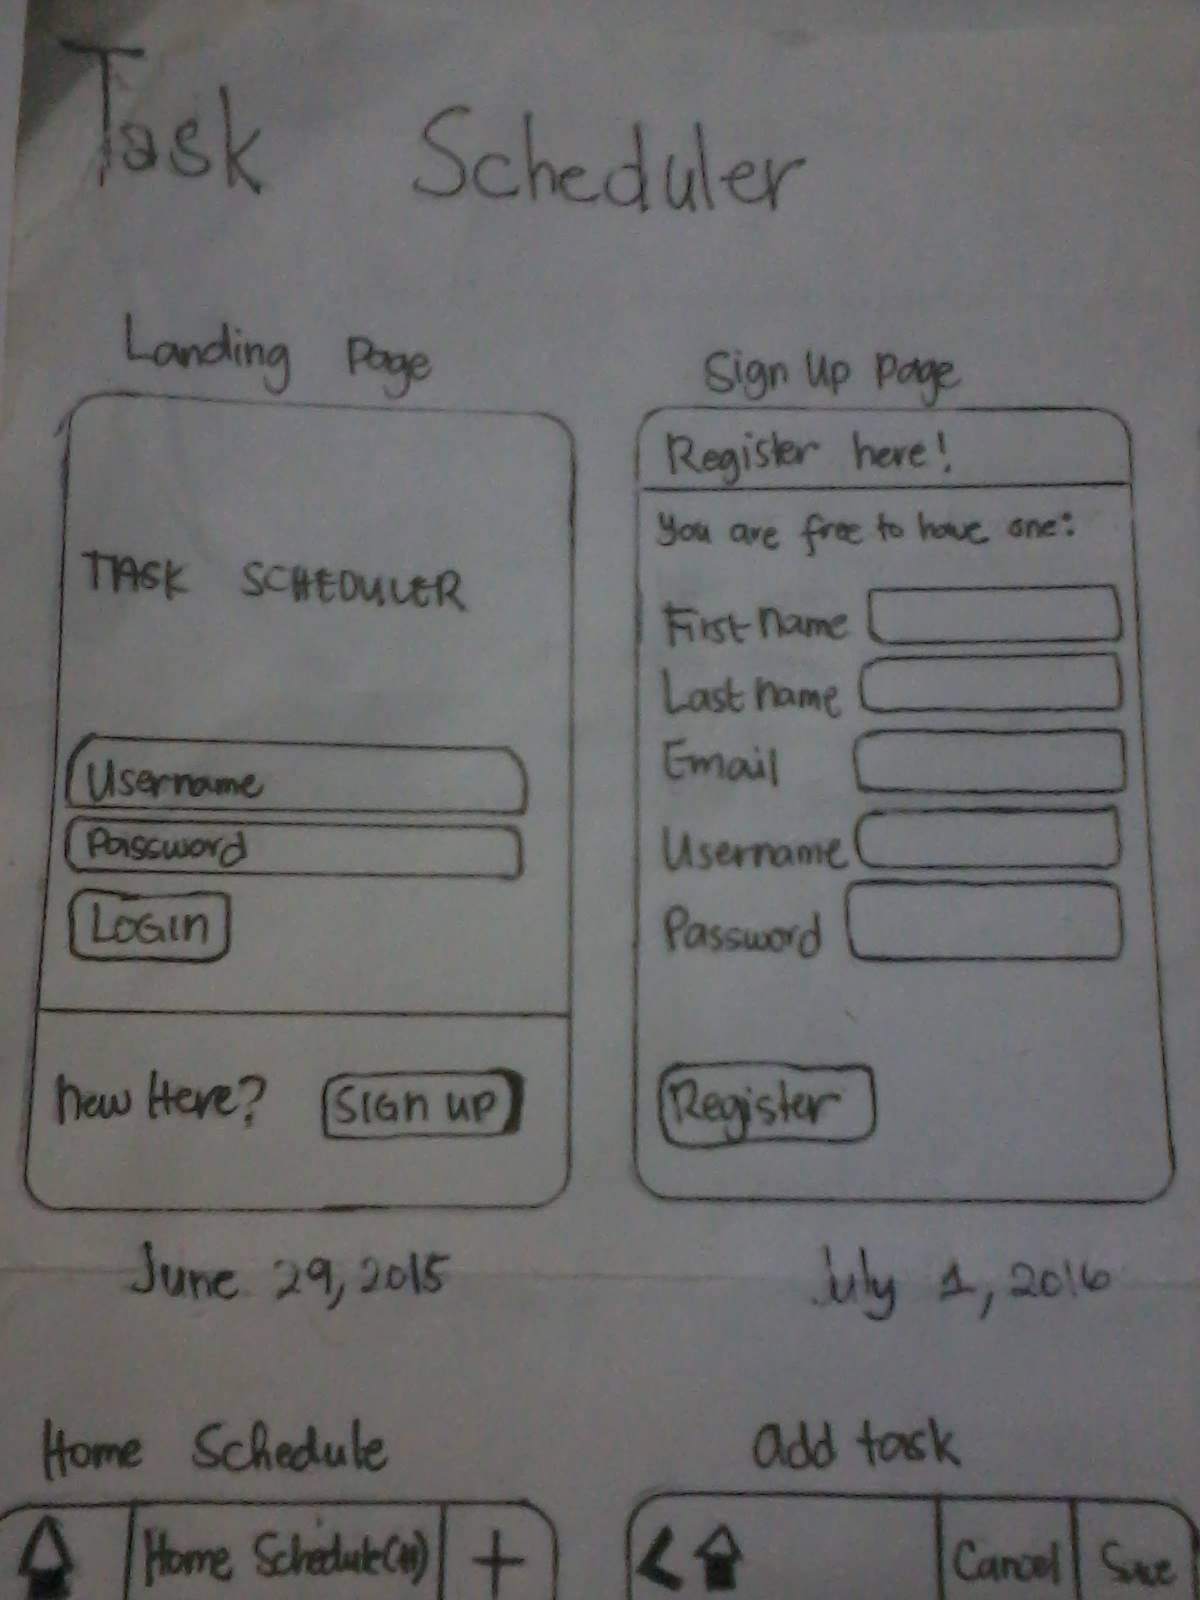 Task Scheduler
Landing Page
TASK SCHEDULER
Username
Password
LOGIN
New Here? SIGN UP
June 29, 2015
Sign Up Page
Register here!
You are free to have one:
First name
Last name
Email
Username
Password
Register
July 1, 2016
Home Schedule
Home Schedule +
add task
Cancel Save